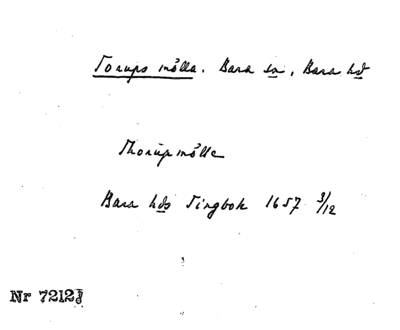 Torups mölla. Bara sn, Bara hd
Thorüpmölle
Bara hds Tingbok 1657 3/12
Nr 7212